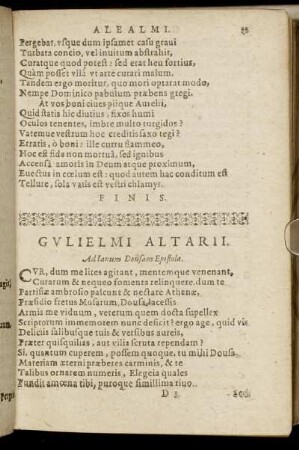 ALEALMI.
Pergebat, vsque dum ipsamet casu graui
Turbata concio, vel inuitum abstrahit,
Curatque quod potest: sed erat heu fortius,
Quàm posset vlla vt arte curari malum.
Tandem ergo moritur, quo mori optarat modo,
Nempe Dominico pabulum præbens gregi.
At vos boni ciues piique Aurelii,
Quid statis hic diutius, fixos humi
Oculos tenentes, imbre multo turgidos?
Vatemue vestrum hoc creditis saxo tegi?
Erratis, ô boni: ille curru flammeo,
Hoc est fide non mortuâ, sed ignibus
Accensâ amoris in Deum atque proximum,
Euectus in cœlum est: quod autem hac conditum est
Tellure, sola vatis est vestri chlamys.
FINIS.
GVLIELMI ALTARII.
Ad Ianum Dousam Epistola.
CVR, dum me lites agitant, mentemque venenant,
Curarum & nequeo fomenta relinquere, dum te
Partisiæ ambrosio pascunt & nectare Athenæ,
Præsidio fretus Musarum, Dousa, lacessis
Armis me viduum, veterum quem docta supellex
Scriptorum immemorem nunc deficit? ergo age, quid vis
Deliciis talibusque tuis & versibus aureis,
Præter quisquilias, aut vilia scruta rependam?
Si, quantum cuperem, possem quoque, tu mihi Dousa
Materiam æterni præberes carminis, & te
Talibus ornarem numeris, Elegeia quales
Fundit amœna tibi, puroque simillima riuo.
D 3.